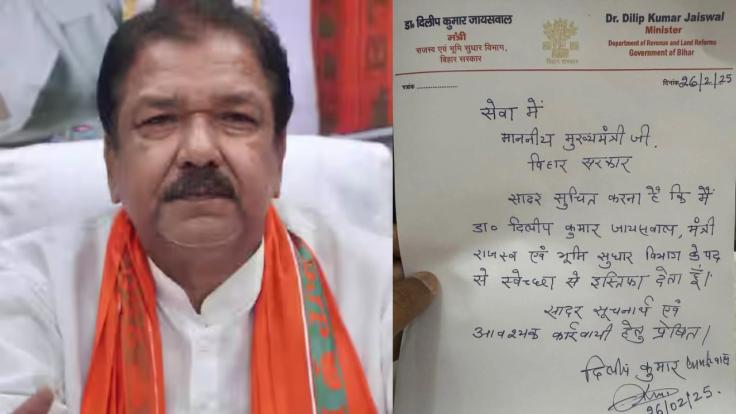 डा॰ दिलीप कुमार जायसवाल
मंत्री
राजस्व एवं भूमि सुधार विभाग,
बिहार सरकार
बिहार सरकार
Dr. Dilip Kumar Jaiswal
Minister
Department of Revenue and Land Reforms
Government of Bihar
दिनांक 26/2/25
सेवा में
माननीय मुख्यमंत्री जी.
बिहार सरकार
सादर सुचित करना है कि मैं
डा० दिलीप कुमार जायसवाल, मंत्री
राजस्व एवं भूमि सुधार विभाग के पद
से स्वेच्छा से इस्तिफा देता हूँ।
सादर सूचनार्थ एवं
आवश्यक कार्रवायी हेतु प्रेषित।
दिलीप कुमार
26/02/25.